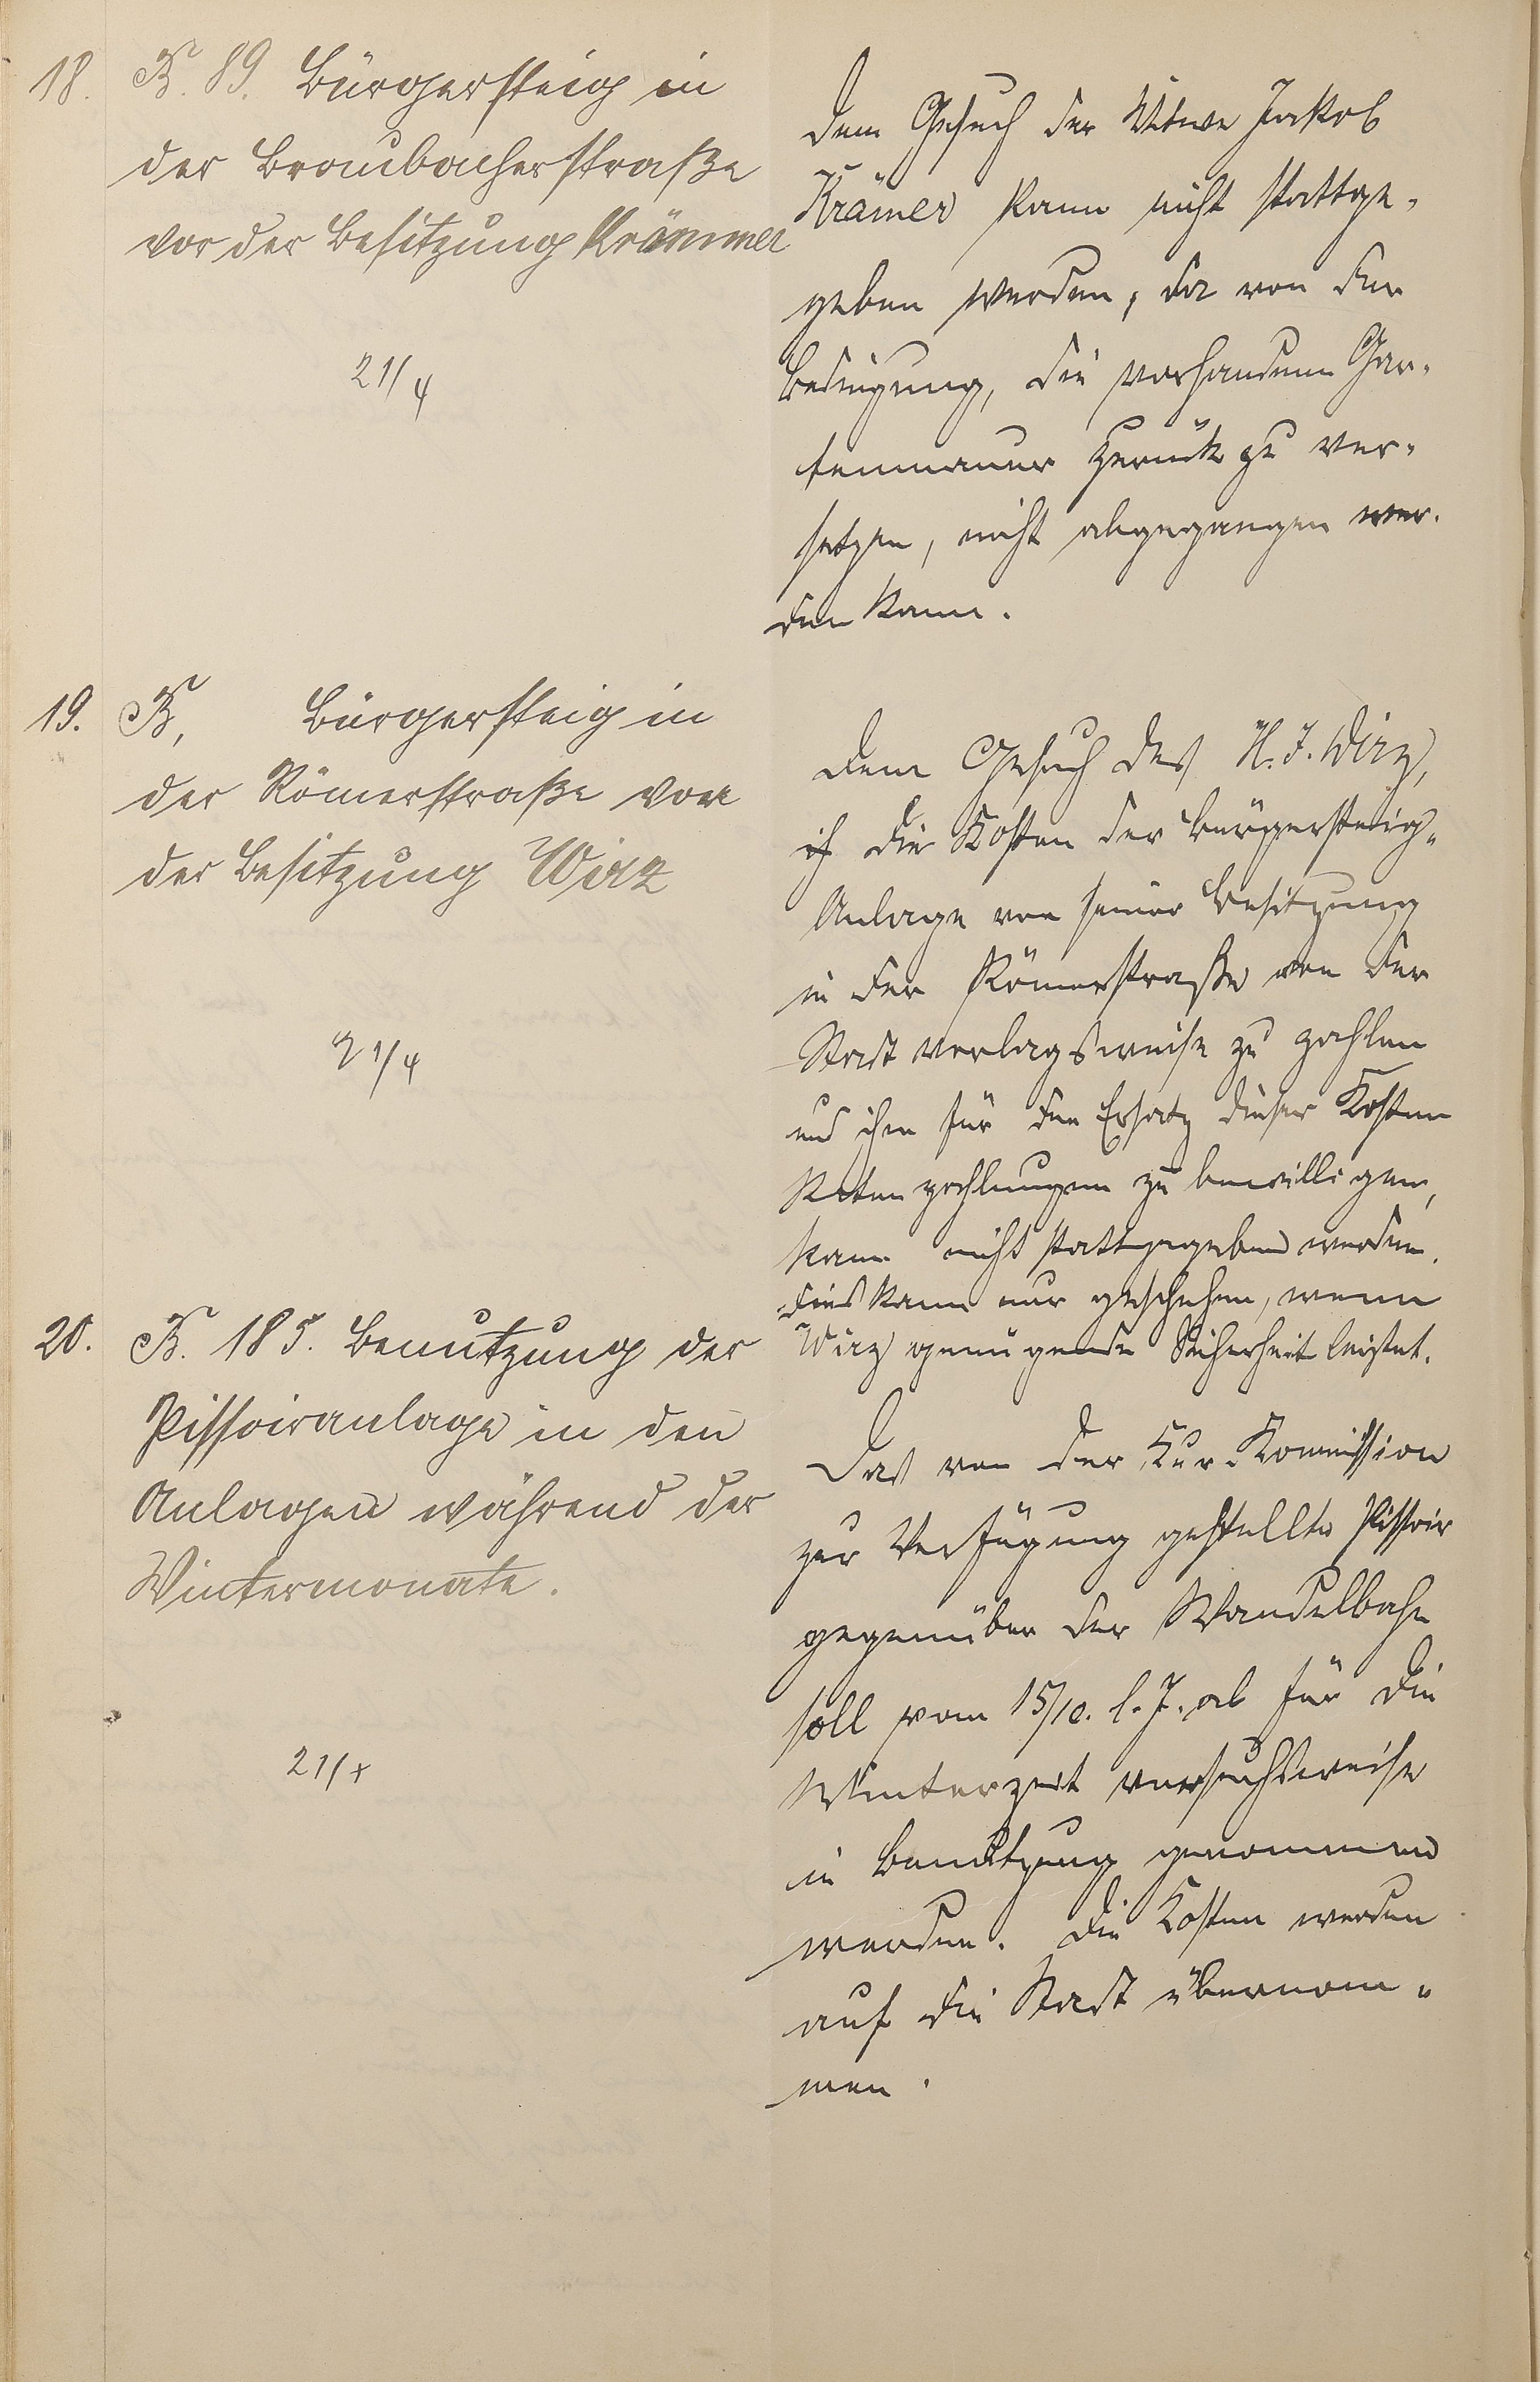 18. B. 89. Bürgersteig in
der Braubacherstraße
vor der Besitzung Krämmer
21/4
Dem Gesuch der Witwe Jakob
Krämer kann nicht stattge-
geben werden, da von der
Bedingung, die vorhandene Gar-
tenmauer zurück zu ver-
setzen, nicht abgegangen wer-
den kann.
19. B, Bürgersteig in
der Römerstraße vor
der Besitzung Wirz
21/4
Dem Gesuch des H. J. Wirz,
die Kosten der Bürgersteig-
Anlage vor seiner Besitzung
in der Römerstraße von der
Stadt verlagsweise zu zahlen
und ihm für den Ersatz dieser Kosten
Ratenzahlungen zu bewilligen,
kann nicht stattgegeben werden.
Dies kann nur geschehen, wenn
Wirz genügende Sicherheit leistet.
20. B. 185. Benutzung der
Pissoiranlage in den
Anlagen während der
Wintermonate.
21/x
Das von der Kur-Kommission
zur Verfügung gestellte Pissoir
gegenüber der Wandelbahn
soll vom 15/10. l. J. ab für die
Winterzeit versuchsweise
in Benutzung genommen
werden. Die Kosten werden
auf die Stadt übernom-
men.